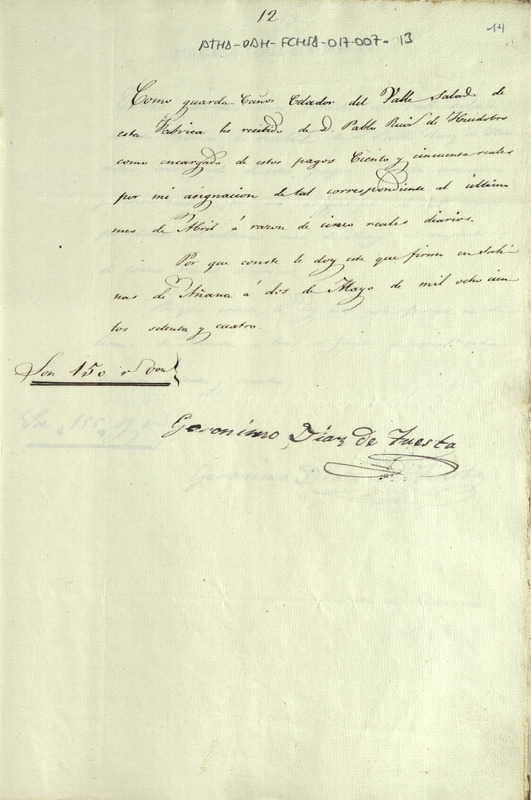 12
14
ATHA-DAH-FCHSA-017-007-13
Como guarda Caños Celador del Valle Salado de
esta Fabrica he recibido de D. Pablo Ruiz de Huidobro
como encargado de estos pagos Ciento y cincuenta reales
por mi asignacion de tal correspondiente al último
mes de Abril á razon de cinco reales diarios.
Por que conste le doy este que firmo en Sali-
nas de Añana á dos de Mayo de mil ocho cien-
tos setenta y cuatro.
Son 150 rs von
Geronimo Diaz de Tuesta